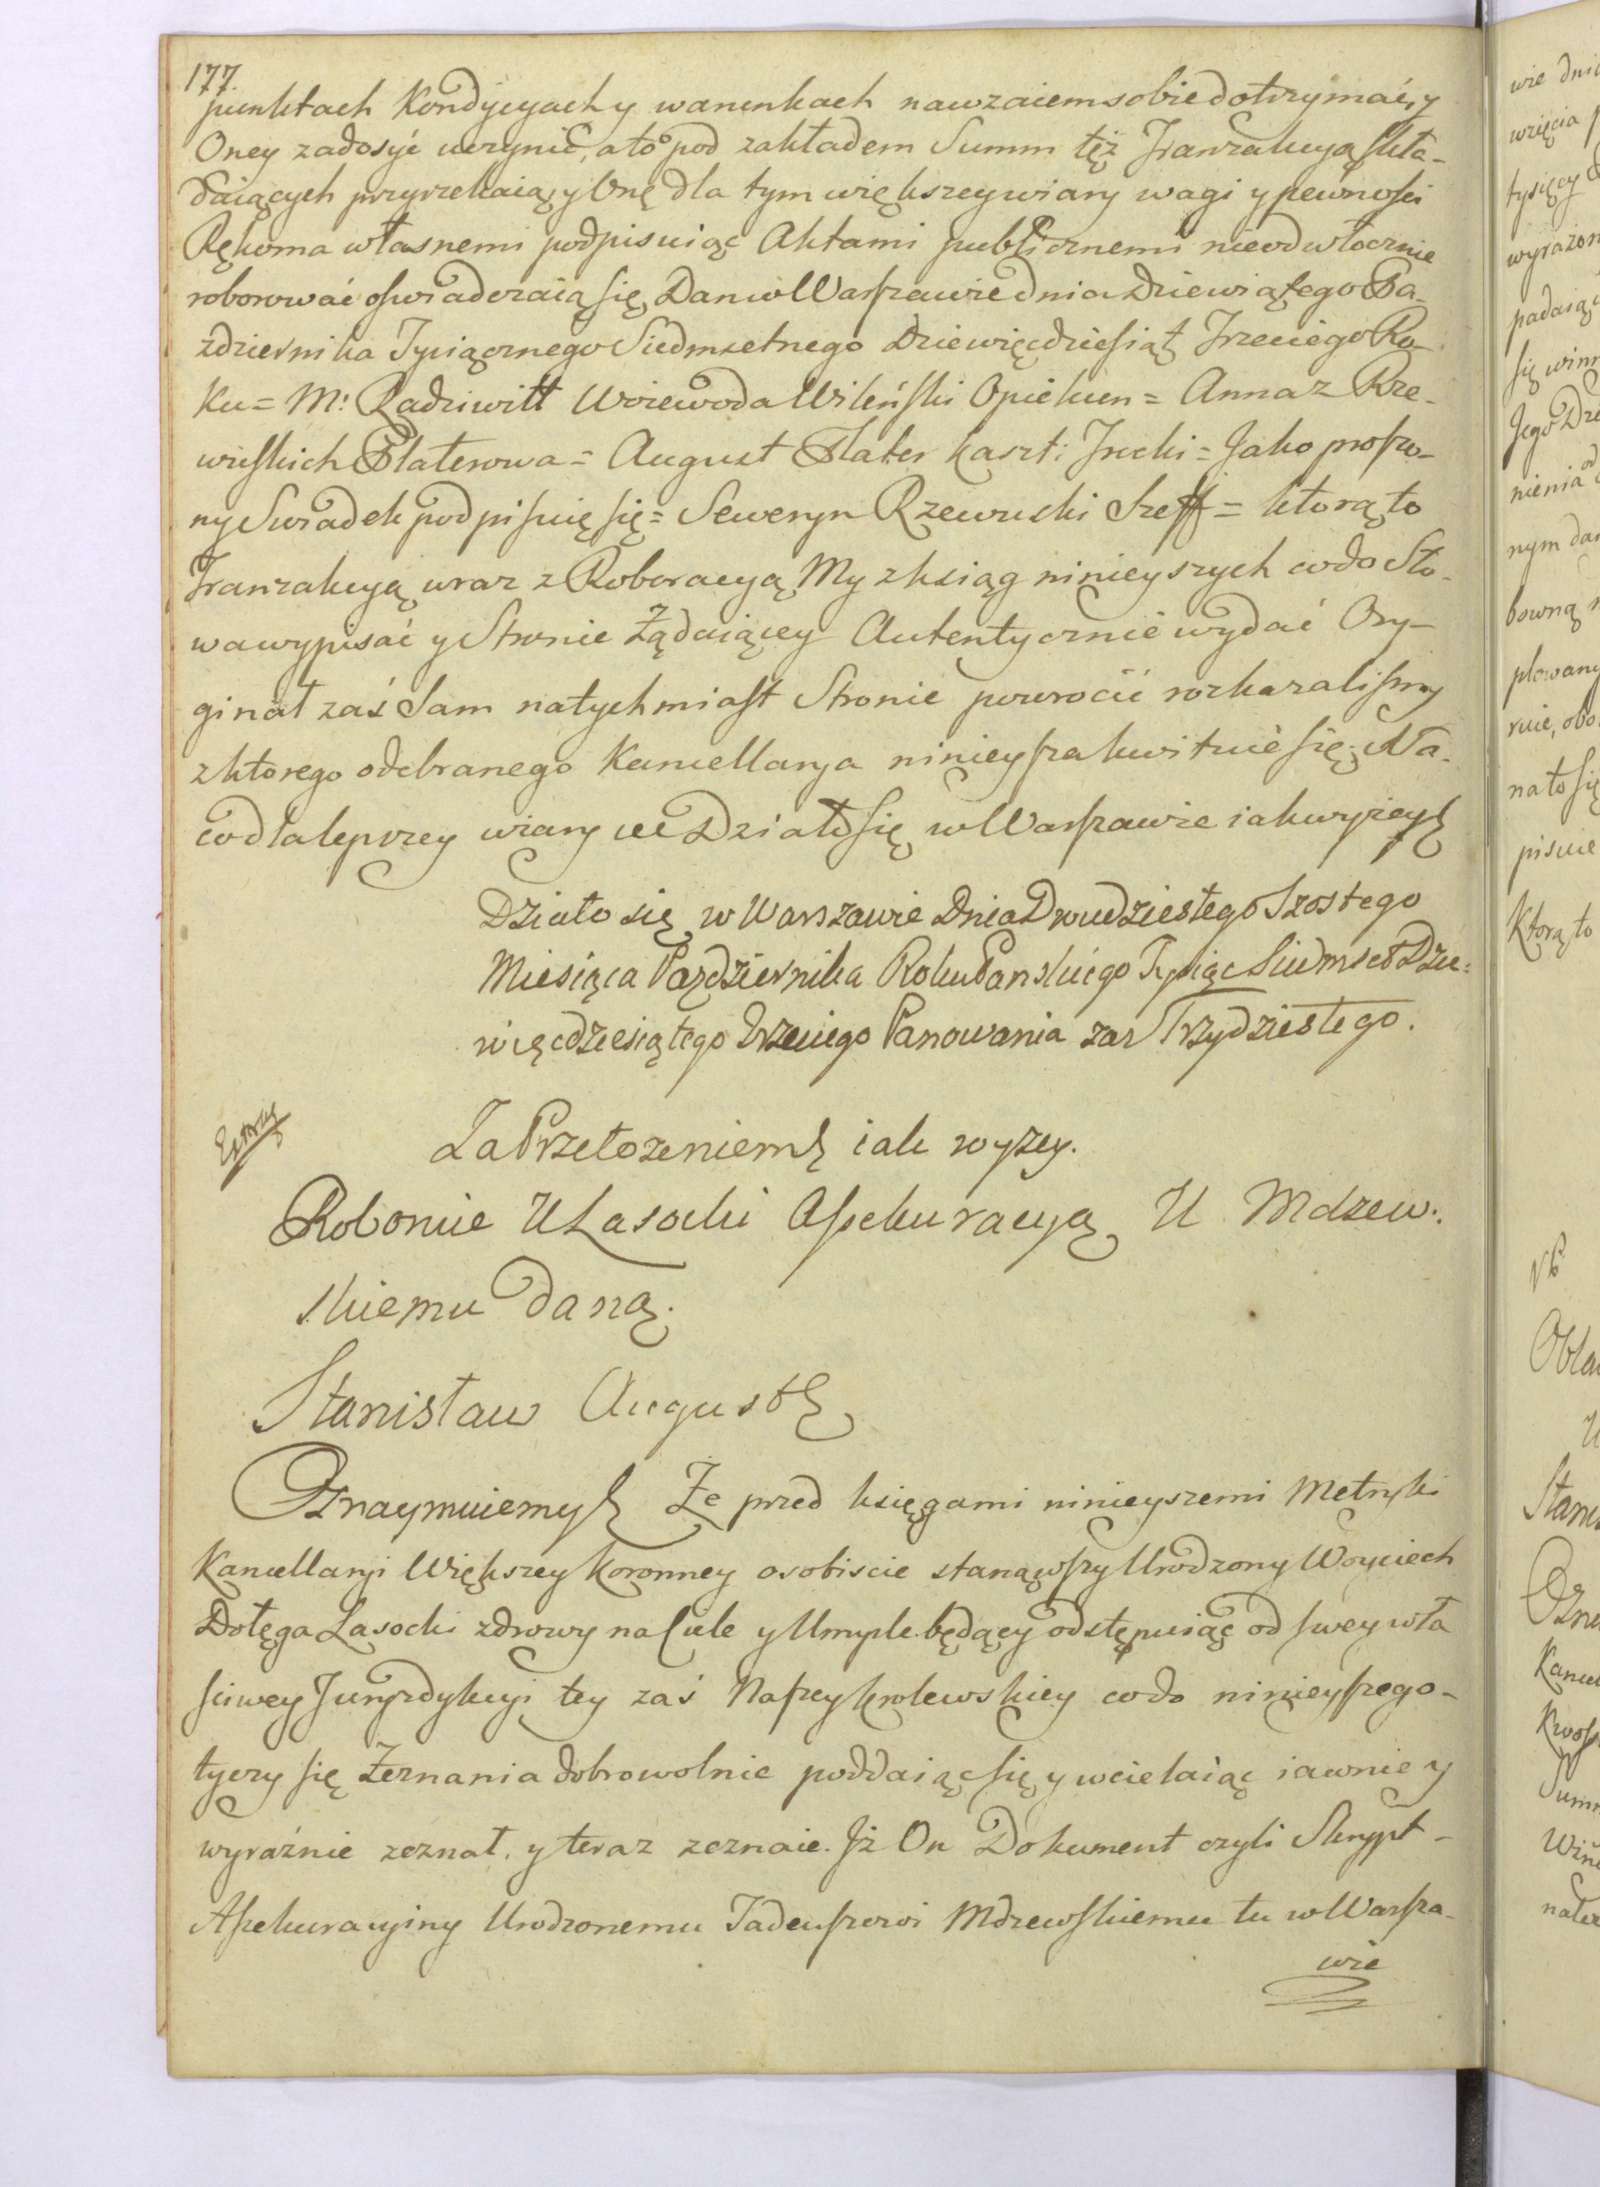 177.
punktach Kondycyach y warunkach nawzaiem sobie dotrzymać, y
Oney zadosyć uczynić, a to pod zakładem Summ tęż Tranzakcyą skła-
daiących przyrzekaią, y Onę dla tym większey wiary wagi y pewnosci
Rękoma własnemi podpisuiąc Aktami publicznemi nieodwłocznie
roborować oswiadczaią się Dan w Warszawie dnia Dziewiątego Pa-
zdziernika Tysiącznego Siedmsetnego Dziewięcdziesiąt Trzeciego Ro-
ku = M: Radziwiłł Woiewoda Wileński Opiekun = Anna z Rze-
wuskich Platerowa = August Plater Kaszt: Trocki = Jako proszo-
ny Swiadek podpisuię się = Seweryn Rzewuski Szeff = ktorą to
Tranzakcyą wraz z Roboracyą My z ksiąg ninieyszych co do Sło-
wa wypisać y Stronie Żądaiącey Autentycznie wydać Ory-
ginał zaś Sam natychmiast Stronie powrocić rozkazalismy
z ktorego odebranego Kancellarya ninieysza kwituie się. Na-
co dla lepszey wiary &c Działo się w Warszawie iak wyżey
Działo się w Warszawie Dnia Dwudziestego Szostego
Miesiąca Pazdziernika Roku Panskiego Tysiąc Siedmset Dzie=
więcdziesiątego Trzeciego Panowania zas Trzydziestego.
Za Przełozeniem iak wyzey.
Roboruie U Lasocki Assekuracyą U Mdzew:
skiemu daną.
Stanisław August
Oznaymuiemy Że przed księgami ninieyszemi Metryki
Kancellaryi Większey Koronney osobiscie stanąwszy Urodzony Woyciech
Dołęga Lasocki zdrowy na Ciele y Umysle będący odstępuiąc od swey wła
sciwey Juryzdykcyi tey zaś Naszey krolewskiey co do ninieyszego-
tyczy się Zeznania dobrowolnie poddaiąc się y wcielaiąc iawnie y
wyraźnie zeznał, y teraz zeznaie. Jż On Dokument czyli Skrypt-
Assekuracyiny Urodzonemu Tadeuszowi Mdzewskiemu tu w Warsza-
wie